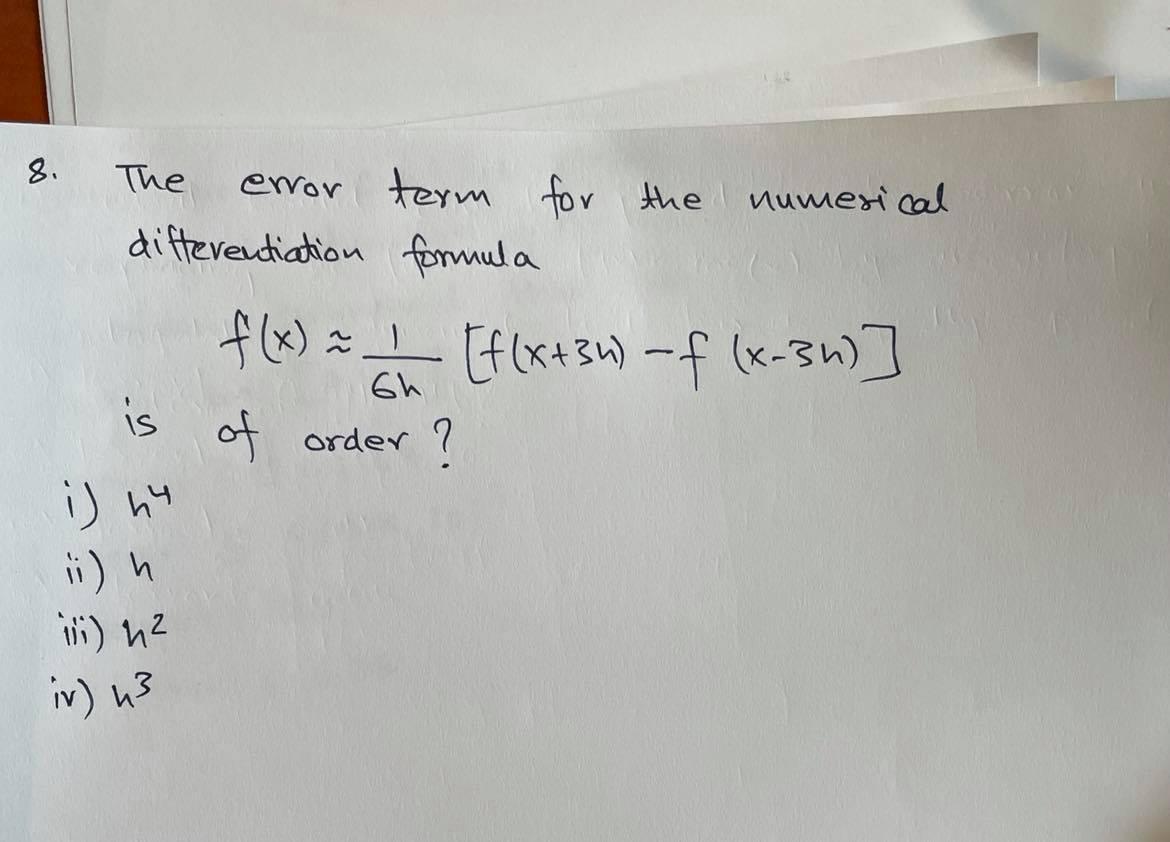 8. The error term for the numerical
differentiation formula
f(x) ≈ 1/6h [f(x+3h) - f (x-3h)]
is of order ?
i) h⁴
ii) h
iii) h²
iv) h³